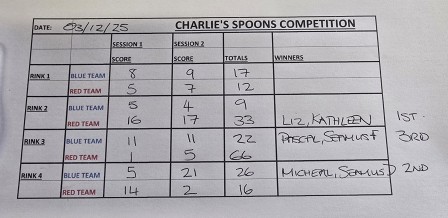 DATE: 03/12/25 CHARLIE'S SPOONS COMPETITION
SESSION 1 SESSION 2
SCORE SCORE TOTALS WINNERS
RINK 1 BLUE TEAM 8 9 17
RED TEAM 5 7 12
RINK 2 BLUE TEAM 5 4 9
RED TEAM 16 17 33 LIZ, KATHLEEN 1ST
RINK 3 BLUE TEAM 11 11 22 PASCAL, SEAMUS F 3RD
RED TEAM 1 5 66
RINK 4 BLUE TEAM 5 21 26 MICHEAL, SEAMUS D 2ND
RED TEAM 14 2 16